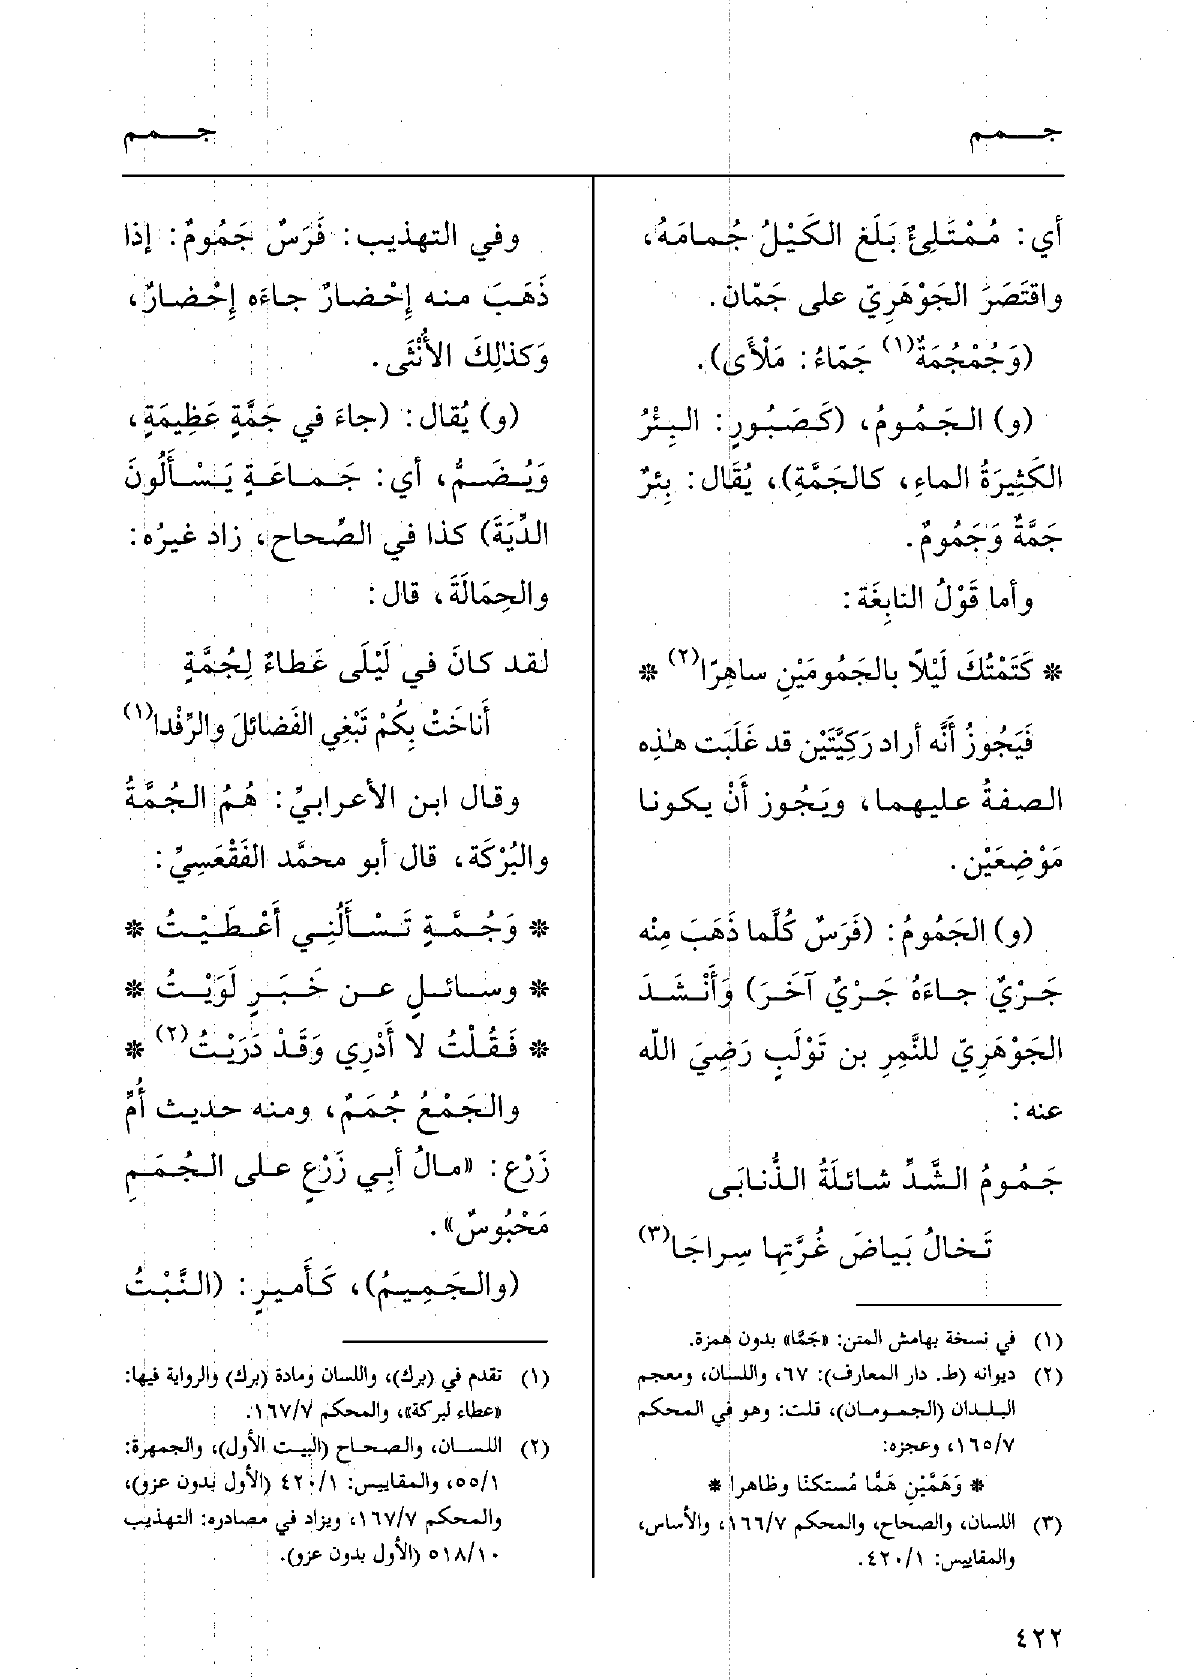 جـمـم
جـمـم
أي: مُمْتَلِئٌ بَلَغ الكَيْلُ جُمامَهُ،
واقتَصَرَ الجَوْهَرِيّ على جَمْان.
(وَجُمْجُمَةٌ(١) جَمّاءُ: مَلْأَى).
(و) الجَمُومُ، (كَصَبُورٍ: البِئْرُ
الكَثِيرَةُ الماءِ، كالجَمَّةِ)، يُقَال: بِئرٌ
جَمَّةٌ وَجَمُومٌ.
وأما قَوْلُ النابِغَة:
* كَتَمْتُكَ لَيْلاً بالجَمُومَيْنِ ساهِرًا(٢) *
فَيَجُوزُ أَنَّه أراد رَكِيَّتَيْن قد غَلَبَت هٰذِه
الصفةُ عليهما، ويَجُوز أَنْ يكونا
مَوْضِعَيْن.
(و) الجَمُومُ: (فَرَسٌ كُلَّما ذَهَبَ مِنْه
جَرْيٌ جاءَهُ جَرْيٌ آخَرَ) وَأَنْشَدَ
الجَوْهَرِيّ للنَّمِرِ بن تَوْلَبٍ رَضِيَ اللّه
عنه:
جَمُومُ الشَّدِّ شائلَةُ الذُّنابَى
تَخالُ بَياضَ غُرَّتِها سِراجَا(٣)
(١) في نسخة بهامش المتن: «جَمَّا» بدون همزة.
(٢) ديوانه (ط. دار المعارف): ٦٧، واللسان، ومعجم
البلدان (الجمومان)، قلت: وهو في المحكم
١٦٥/٧، وعجزه:
* وَهَمَّيْنِ هَمًّا مُستكنًا وظاهرا *
(٣) اللسان، والصحاح، والمحكم ١٦٦/٧، والأساس،
والمقاييس: ٤٢٠/١.
وفي التهذيب: فَرَسٌ جَمُومٌ: إذا
ذَهَبَ منه إِحْضارٌ جاءَه إِحْضارٌ،
وَكذٰلِكَ الأُنْثَى.
(و) يُقال: (جاءَ في جَمَّةٍ عَظِيمَةٍ،
وَيُضَمُّ، أي: جَماعَةٍ يَسْأَلُونَ
الدِّيَةَ) كذا في الصِّحاح، زاد غيرُه:
والحِمَالَةَ، قال:
لقد كانَ في لَيْلَى عَطاءٌ لِجُمَّةٍ
أَناخَتْ بِكُمْ تَبْغِي الفَضائلَ والرِّفْدا(١)
وقال ابن الأعرابيِّ: هُمُ الجُمَّةُ
والبُرْكَة، قال أبو محمَّد الفَقْعَسِيِّ:
* وَجُمَّةٍ تَسْأَلُنِي أَعْطَيْتُ *
* وسائلٍ عن خَبَرٍ لَوَيْتُ *
* فَقُلْتُ لا أَدْرِي وَقَدْ دَرَيْتُ(٢) *
والجَمْعُ جُمَمٌ، ومنه حديث أُمِّ
زَرْع: «مالُ أَبِي زَرْعٍ على الجُمَمِ
مَحْبُوسٌ».
(والجَمِيمُ)، كَأَميرٍ: (النَّبْتُ
(١) تقدم في (برك)، واللسان ومادة (برك) والرواية فيها:
«عطاء لبركة»، والمحكم ١٦٧/٧.
(٢) اللسان، والصحاح (البيت الأول)، والجمهرة:
٥٥/١، والمقاييس: ٤٢٠/١ (الأول بدون عزو)،
والمحكم ١٦٧/٧، ويزاد في مصادره: التهذيب
٥١٨/١٠ (الأول بدون عزو).
٤٢٢